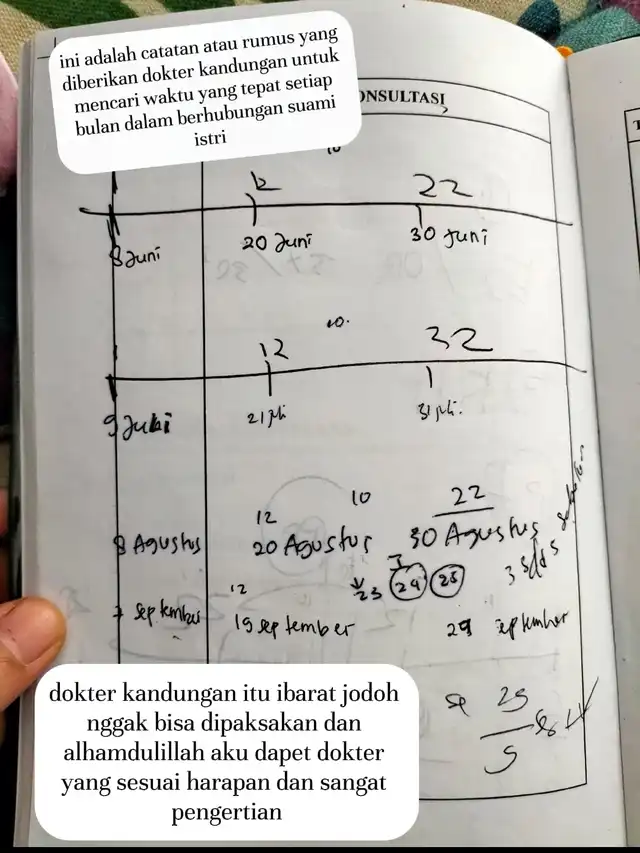 ini adalah catatan atau rumus yang
diberikan dokter kandungan untuk
mencari waktu yang tepat setiap
bulan dalam berhubungan suami
istri
ONSULTASI
12 22
8 Juni 20 Juni 30 Juni
10.
12 32
9 Juli 21 Juli 31 Juli.
12 10 22
8 Agustus 20 Agustus 30 Agustus
23 24 25
12
7 September 19 september 29 september
25
5
dokter kandungan itu ibarat jodoh
nggak bisa dipaksakan dan
alhamdulillah aku dapet dokter
yang sesuai harapan dan sangat
pengertian